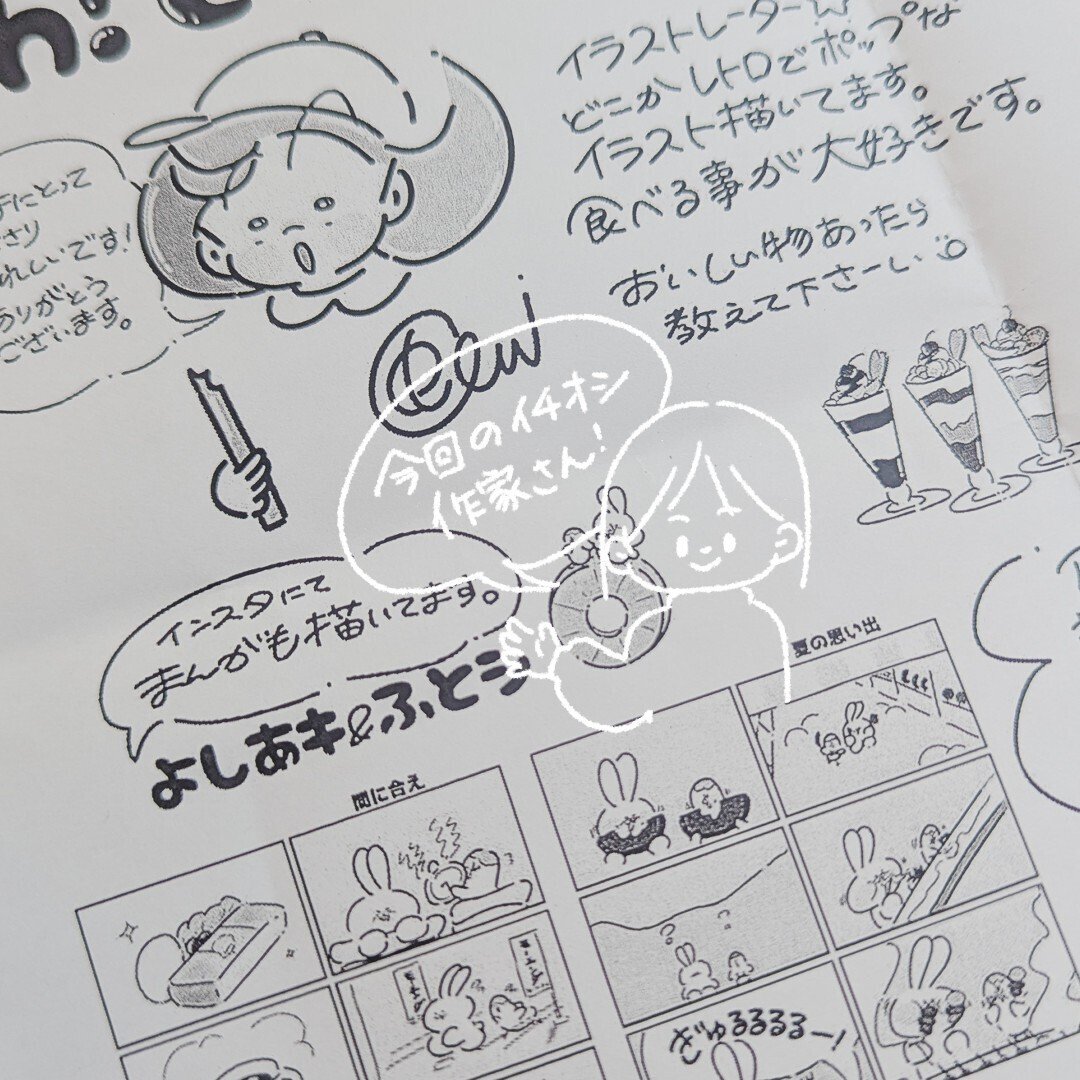 イラストレーター☆
どこかレトロでポップな
イラスト描いてます。
食べる事が大好きです。
おいしい物あったら
教えて下さーい
手にとって
さり
れしいです!
ありがとう
ございます。
今回のイチオシ
作家さん!
インスタにて
まんがも描いてます。
よしあき&ふとう
間に合え
夏の思い出
ざゅるるるるー!